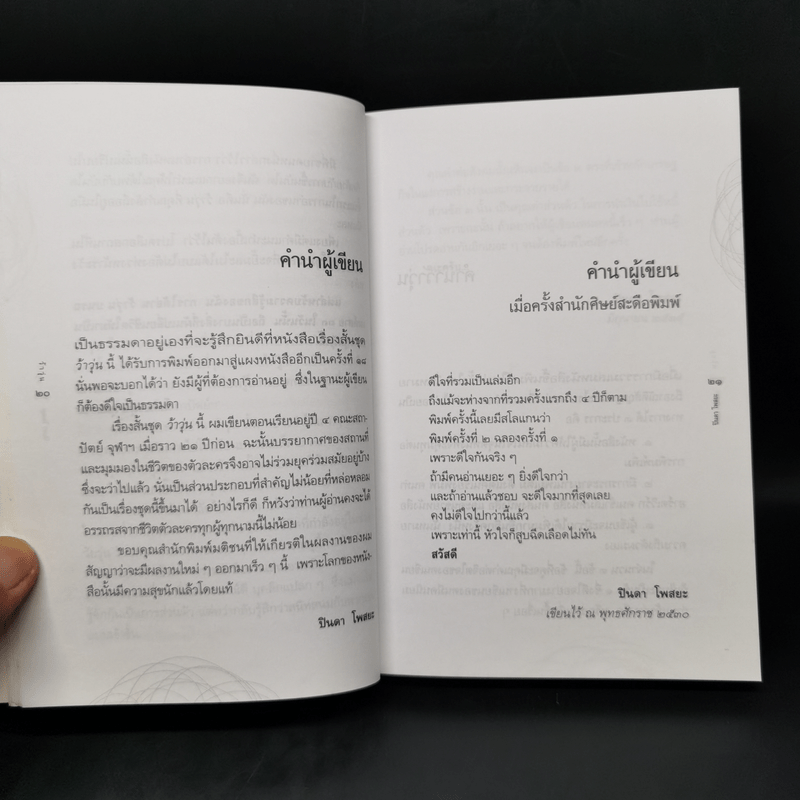 คำนำผู้เขียน
เป็นธรรมดาอยู่เองที่จะรู้สึกยินดีที่หนังสือเรื่องสั้นชุด
ว้าวุ่น นี้ ได้รับการพิมพ์ออกมาสู่แผงหนังสืออีกเป็นครั้งที่ ๑๘
นั่นพอจะบอกได้ว่า ยังมีผู้ที่ต้องการอ่านอยู่ ซึ่งในฐานะผู้เขียน
ก็ต้องดีใจเป็นธรรมดา
เรื่องสั้นชุด ว้าวุ่น นี้ ผมเขียนตอนเรียนอยู่ปี ๔ คณะสถา-
ปัตย์ จุฬาฯ เมื่อราว ๒๑ ปีก่อน ฉะนั้นบรรยากาศของสถานที่
และมุมมองในชีวิตของตัวละครจึงอาจไม่ร่วมยุคร่วมสมัยอยู่บ้าง
ซึ่งจะว่าไปแล้ว นั่นเป็นส่วนประกอบที่สำคัญไม่น้อยที่หล่อหลอม
กันเป็นเรื่องชุดนี้ขึ้นมาได้ อย่างไรก็ดี ก็หวังว่าท่านผู้อ่านคงจะได้
อรรถรสจากชีวิตตัวละครทุกผู้ทุกนามนี้ไม่น้อย
ขอบคุณสำนักพิมพ์มติชนที่ให้เกียรติในผลงานของผม
สัญญาว่าจะมีผลงานใหม่ ๆ ออกมาเร็ว ๆ นี้ เพราะโลกของหนัง-
สือนั้นมีความสุขนักแล้วโดยแท้
ปินดา โพสยะ
ว้าวุ่น
๒๐
คำนำผู้เขียน
เมื่อครั้งสำนักศิษย์สะดือพิมพ์
ดีใจที่รวมเป็นเล่มอีก
ถึงแม้จะห่างจากที่รวมครั้งแรกถึง ๔ ปีก็ตาม
พิมพ์ครั้งนี้เลยมีสโลแกนว่า
พิมพ์ครั้งที่ ๒ ฉลองครั้งที่ ๑
เพราะดีใจกันจริง ๆ
ถ้ามีคนอ่านเยอะ ๆ ยิ่งดีใจกว่า
และถ้าอ่านแล้วชอบ จะดีใจมากที่สุดเลย
คงไม่ดีใจไปกว่านี้แล้ว
เพราะเท่านี้ หัวใจก็สูบฉีดเลือดไม่ทัน
สวัสดี
ปินดา โพสยะ
เขียนไว้ ณ พุทธศักราช ๒๕๓๐
๒๑
ปินดา โพสยะ